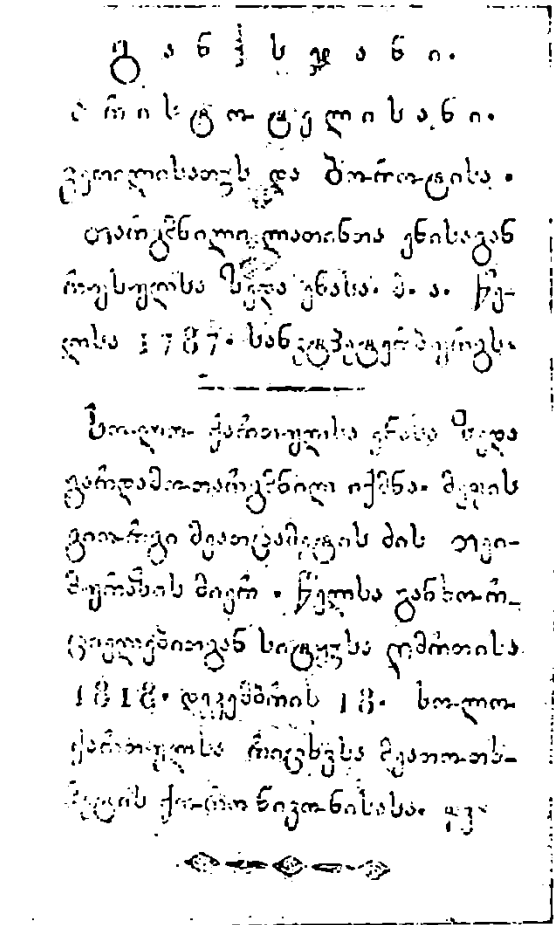 განსჯანი.
არისტოტელისანი.
კეთილისათჳს და ბოროტისა.
თარგმნილი ლათინთა ენისაგან
რუსულსა ზედა ენასა. მ. ა. წე-
ლსა 1787. სანკტპეტერბურგს.
ხოლო ქართულსა ენასა ზედა
გარდამოთარგმნილ იქმნა. მეფის
გიორგი მეათცამეტის ძის თეი-
მურაზის მიერ. წელსა განხორ-
ციელებითგან სიტყჳსა ღმრთისა
1818. დეკემბრის 18. ხოლო
ქართულსა რიცხჳსა მეათოთხ-
მეტის ქორონიკონისასა. ფვ